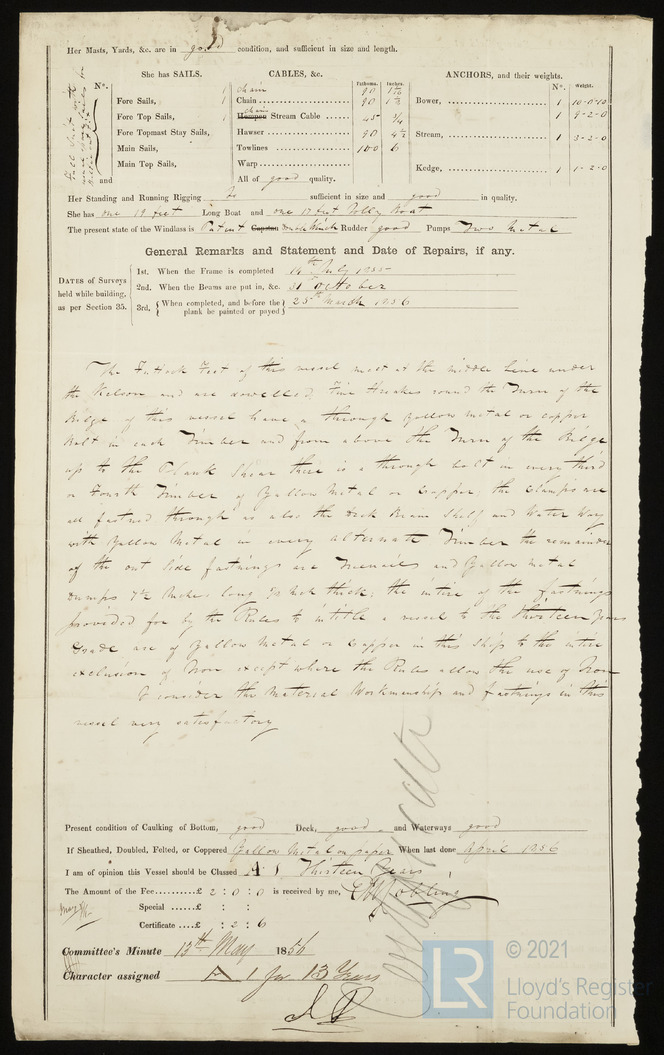 Her Masts, Yards, &c. are in good condition, and sufficient in size and length.
She has SAILS.
CABLES, &c.
ANCHORS, and their weights.
Nº.
Fathoms. Inches.
Nº. Weight.
Fore Sails,
Fore Top Sails,
Fore Topmast Stay Sails,
Main Sails,
Main Top Sails,
and
chain
Chain 90
chain
Hempen Stream Cable 45 3/4
Hawser 90 4½
Towlines 100 6
Warp
All of good quality.
Bower, 1 10-0-10
1 9-2-0
Stream, 1 3-2-0
Kedge, 1 1-2-0
Her Standing and Running Rigging is sufficient in size and good in quality.
She has one 19 feet Long Boat and one 17 feet Jolly Boat
The present state of the Windlass is Patent Capstan Rudder good Pumps Two Metal
General Remarks and Statement and Date of Repairs, if any.
DATES of Surveys held while building, as per Section 35.
1st. When the Frame is completed 14th July 1855
2nd. When the Beams are put in, &c. 31st October
3rd. When completed, and before the plank be painted or payed 25th March 1856
The Futtock Feet of this vessel meet at the middle line under
the Kelson and are dowelled, Five Strakes round the Turn of the
Bilge of this vessel have a through Yellow metal or copper
Bolt in each Timber and from above the Turn of the Bilge
up to the Plank Shear there is a through bolt in every third
or Fourth Timber of Yellow Metal or Copper, the clamps are
all fastned through as also the Deck Beam Shelf and Water Way
with Yellow Metal in every alternate Timber the remainder
of the out side fastnings are Trenails and Yellow metal
Dumps 7½ Inches long thick; the intire of the fastnings
provided for by the Rules to intitle a vessel to the thirteen years
Grade are of Yellow Metal or Copper in this Ship to the intire
exclusion of Iron except where the Rules allow the use of Iron
I consider the Material Workmanship and fastnings in this
vessel very satisfactory
Present condition of Caulking of Bottom, good Deck, good and Waterways good
If Sheathed, Doubled, Felted, or Coppered Yellow Metal on paper When last done April 1856
I am of opinion this Vessel should be Classed A 1 Thirteen Years
The Amount of the Fee £ 2 : 0 : 0 is received by me,
Special £ : :
Certificate £ : 2 : 6
Committee's Minute 13th May 1856
Character assigned A 1 for 13 Years
LR
© 2021
Lloyd's Register
Foundation